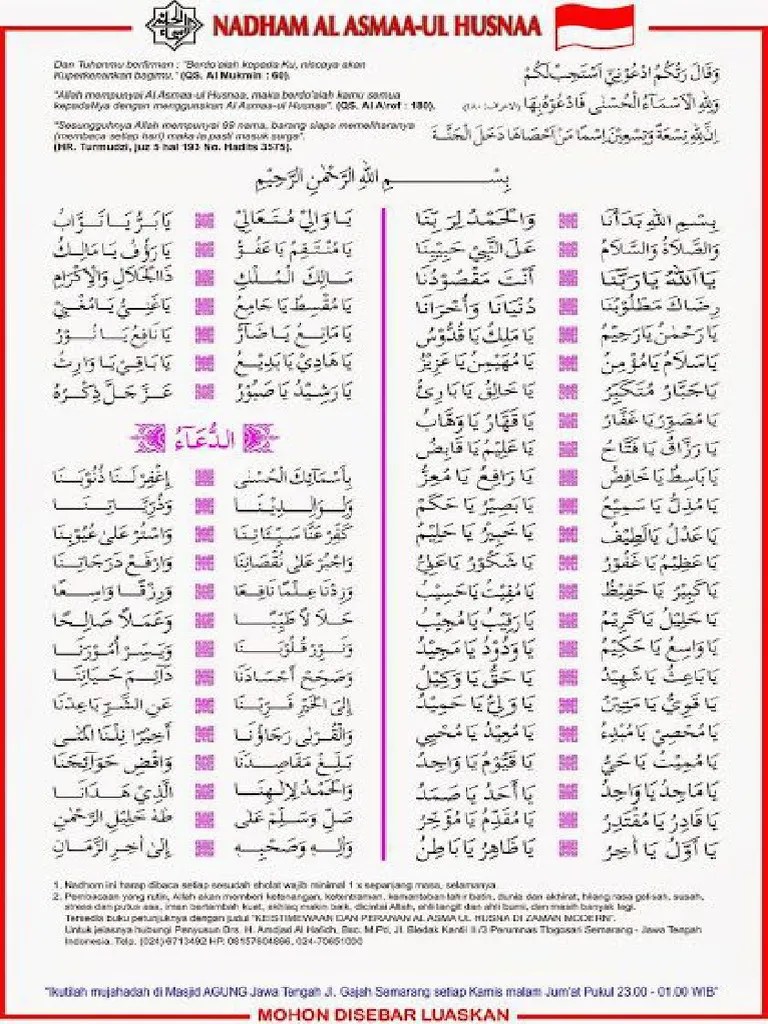 NADHAM AL ASMAA-UL HUSNAA
Dan Tuhanmu berfirman : "Berdo'alah kepada Ku, niscaya akan
Kuperkenankan bagimu." (QS. Al Mukmin : 60).
"Allah mempunyai Al Asmaa-ul Husnaa, maka berdo'alah kamu semua
kepadaNya dengan menggunakan Al Asmaa-ul Husnaa". (QS. Al A'rof : 180).
"Sesungguhnya Allah mempunyai 99 nama, barang siapa memeliharanya
(membaca setiap hari) maka ia pasti masuk surga".
(HR. Turmudzi, juz 5 hal 193 No. Hadits 3575).
وَقَالَ رَبُّكُمُ ادْعُوْنِيْ اَسْتَجِبْ لَكُمْ
وَلِلّٰهِ الْاَسْمَآءُ الْحُسْنٰى فَادْعُوْهُ بِهَا
اِنَّ لِلّٰهِ تِسْعَةً وَتِسْعِيْنَ اِسْمًا مَنْ اَحْصَاهَا دَخَلَ الْجَنَّةَ
بِسْمِ اللّٰهِ الرَّحْمٰنِ الرَّحِيْمِ
بِسْمِ اللّٰهِ بَدَأْنَا وَالْحَمْدُ لِرَبِّنَا
وَالصَّلَاةُ وَالسَّلَامُ عَلَى النَّبِيِّ حَبِيْبِنَا
يَا اَللّٰهُ يَا رَبَّنَا أَنْتَ مَقْصُوْدُنَا
رِضَاكَ مَطْلُوْبُنَا دُنْيَانَا وَأُخْرَانَا
يَا رَحْمٰنُ يَا رَحِيْمُ يَا مَلِكُ يَا قُدُّوْسُ
يَا سَلَامُ يَا مُؤْمِنُ يَا مُهَيْمِنُ يَا عَزِيْزُ
يَا جَبَّارُ مُتَكَبِّرُ يَا خَالِقُ يَا بَارِئُ
يَا مُصَوِّرُ يَا غَفَّارُ يَا قَهَّارُ يَا وَهَّابُ
يَا رَزَّاقُ يَا فَتَّاحُ يَا عَلِيْمُ يَا قَابِضُ
يَا بَاسِطُ يَا خَافِضُ يَا رَافِعُ يَا مُعِزُّ
يَا مُذِلُّ يَا سَمِيْعُ يَا بَصِيْرُ يَا حَكَمُ
يَا عَدْلُ يَا لَطِيْفُ يَا خَبِيْرُ يَا حَلِيْمُ
يَا عَظِيْمُ يَا غَفُوْرُ يَا شَكُوْرُ يَا عَلِيُّ
يَا كَبِيْرُ يَا حَفِيْظُ يَا مُقِيْتُ يَا حَسِيْبُ
يَا جَلِيْلُ يَا كَرِيْمُ يَا رَقِيْبُ يَا مُجِيْبُ
يَا وَاسِعُ يَا حَكِيْمُ يَا وَدُوْدُ يَا مَجِيْدُ
يَا بَاعِثُ يَا شَهِيْدُ يَا حَقُّ يَا وَكِيْلُ
يَا قَوِيُّ يَا مَتِيْنُ يَا وَلِيُّ يَا حَمِيْدُ
يَا مُحْصِيْ يَا مُبْدِءُ يَا مُعِيْدُ يَا مُحْيِيْ
يَا مُمِيْتُ يَا حَيُّ يَا قَيُّوْمُ يَا وَاجِدُ
يَا مَاجِدُ يَا وَاحِدُ يَا أَحَدُ يَا صَمَدُ
يَا قَادِرُ يَا مُقْتَدِرُ يَا مُقَدِّمُ يَا مُؤَخِّرُ
يَا أَوَّلُ يَا اٰخِرُ يَا ظَاهِرُ يَا بَاطِنُ
يَا وَالِيْ مُتَعَالِيْ يَا بَرُّ يَا تَوَّابُ
يَا مُنْتَقِمُ يَا عَفُوُّ يَا رَؤُفُ يَا مَالِكُ
مَالِكَ الْمُلْكِ ذَا الْجَلَالِ وَالْاِكْرَامِ
يَا مُقْسِطُ يَا جَامِعُ يَا غَنِيُّ يَا مُغْنِيْ
يَا مَانِعُ يَا ضَآرُّ يَا نَافِعُ يَا نُوْرُ
يَا هَادِيْ يَا بَدِيْعُ يَا بَاقِيْ يَا وَارِثُ
يَا رَشِيْدُ يَا صَبُوْرُ عَزَّ جَلَّ ذِكْرُهُ
الدُّعَآءُ
بِأَسْمَائِكَ الْحُسْنٰى اِغْفِرْ لَنَا ذُنُوْبَنَا
وَلِوَالِدِيْنَا وَذُرِّيَّاتِنَا
كَفِّرْ عَنَّا سَيِّئَاتِنَا وَاسْتُرْ عَلَى عُيُوْبِنَا
وَاجْبُرْ عَلَى نُقْصَانِنَا وَارْفَعْ دَرَجَاتِنَا
وَزِدْنَا عِلْمًا نَافِعًا وَرِزْقًا وَاسِعًا
حَلَالًا طَيِّبًا وَعَمَلًا صَالِحًا
وَنَوِّرْ قُلُوْبَنَا وَيَسِّرْ أُمُوْرَنَا
وَصَحِّحْ أَجْسَادَنَا دَائِمَ حَيَاتِنَا
إِلَى الْخَيْرِ قَرِّبْنَا عَنِ الشَّرِّ بَاعِدْنَا
وَالْقُرْبٰى رَجَاؤُنَا أَخِيْرًا نِلْنَا الْمُنٰى
بَلِّغْ مَقَاصِدَنَا وَاقْضِ حَوَآئِجَنَا
وَالْحَمْدُ لِإِلٰهِنَا الَّذِيْ هَدَانَا
صَلِّ وَسَلِّمْ عَلَى طٰهٰ خَلِيْلِ الرَّحْمٰنِ
وَاٰلِهِ وَصَحْبِهِ إِلَى اٰخِرِ الزَّمَانِ
1. Nadhom ini harap dibaca setiap sesudah sholat wajib minimal 1 x sepanjang masa, selamanya
2. Pembacaan yang rutin, Allah akan memberi ketenangan, ketentraman, kemantaban lahir batin, dunia dan akhirat, hilang rasa gelisah, susah,
stress dan putus asa, iman bertambah kuat, akhlaq makin baik, dicintai Allah, ahli langit dan ahli bumi, dan masih banyak lagi.
Tersedia buku petunjuknya dengan judul "KEISTIMEWAAN DAN PERANAN AL ASMA UL HUSNA DI ZAMAN MODERN".
Untuk jelasnya hubungi Penyusun Drs. H. Amdjad Al Hafidh, Bsc. M.Pd, Jl. Bledak Kantil II /3 Perumnas Tlogosari Semarang - Jawa Tengah
Indonesia. Telp. (024) 6713492 HP. 08157604866, 024-70651090
"Ikutilah mujahadah di Masjid AGUNG Jawa Tengah Jl. Gajah Semarang setiap Kamis malam Jum'at Pukul 23.00 - 01.00 WIB"
MOHON DISEBAR LUASKAN